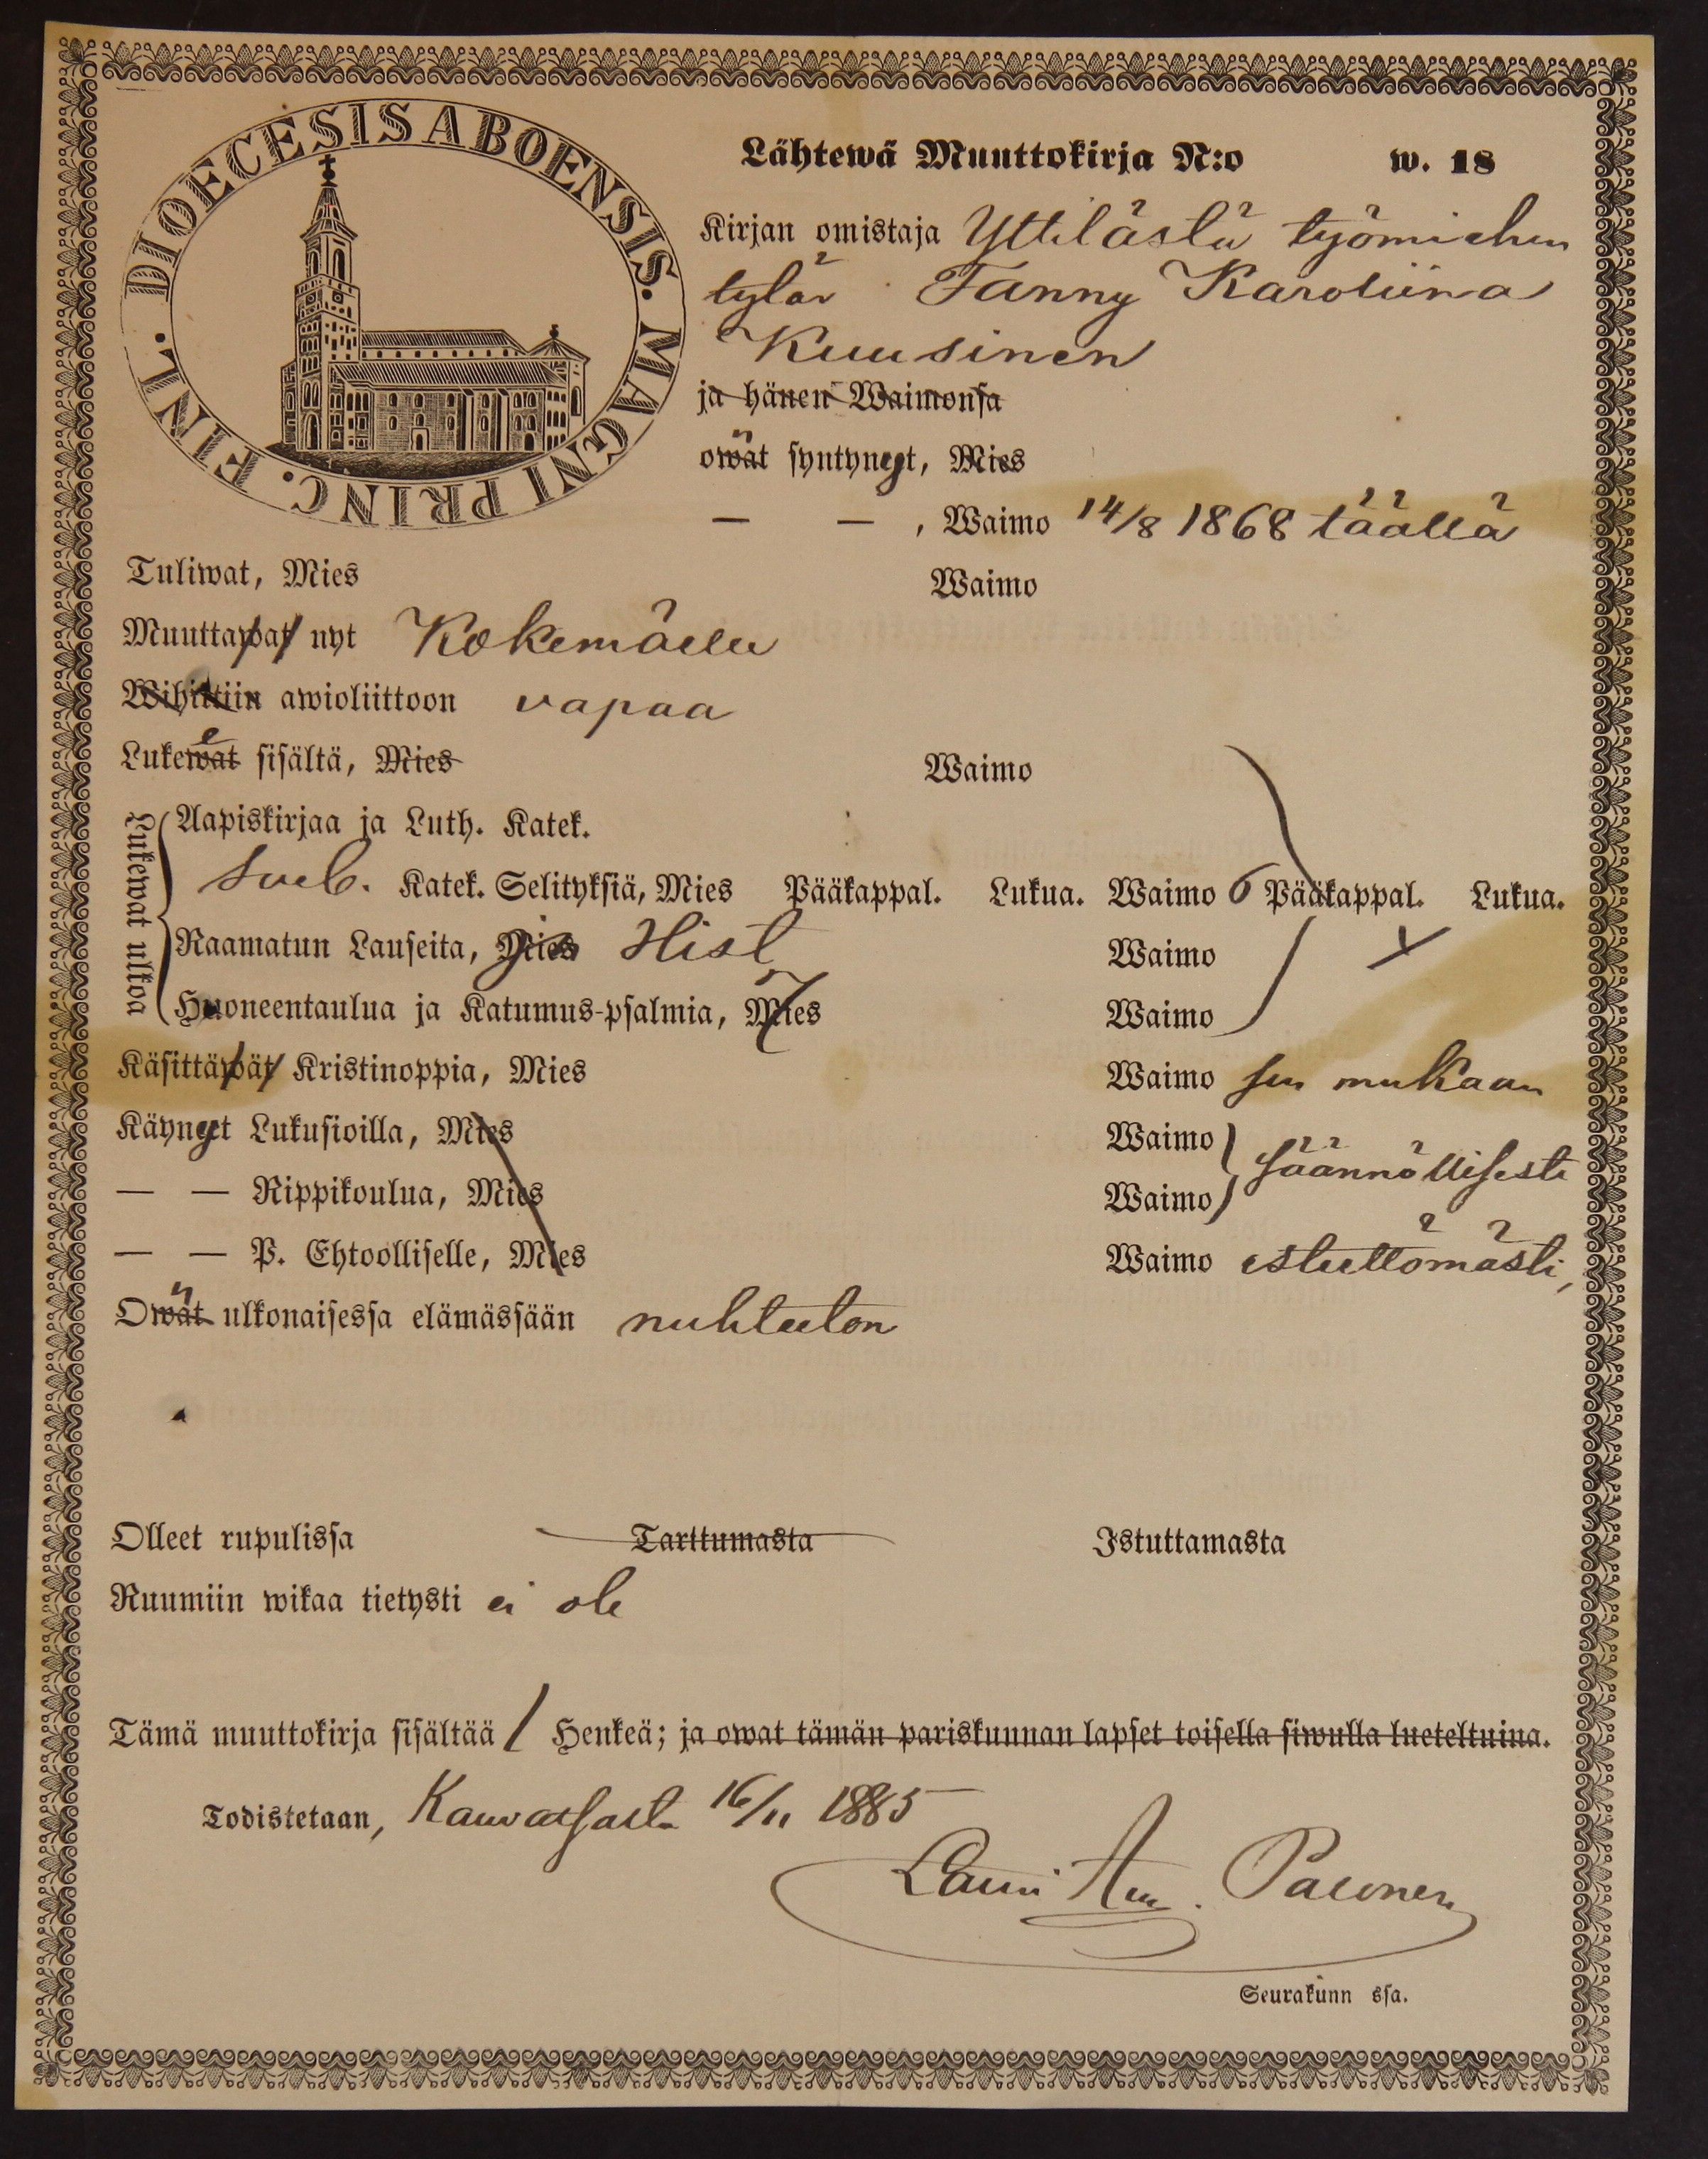 DIOECESIS ABOENSIS. MAGNI PRINC. FINL.
Lähtewä Muuttokirja N:o w. 18
Kirjan omistaja Yttilästä työmiehen
tytär Fanny Karoliina
Kuusinen
ja hänen Waimonsa
owat syntynyt, Mies
— — , Waimo 14/8 1868 täällä
Tuliwat, Mies Waimo
Muuttawat nyt Kokemäelle
Wihittiin awioliittoon vapaa
Lukewat sisältä, Mies Waimo
Lukewat ulkoa
Aapiskirjaa ja Luth. Katek.
Sveb. Katek. Selityksiä, Mies Pääkappal. Lukua. Waimo 6 Pääkappal. Lukua.
Raamatun Lauseita, Mies Hist Waimo
Huoneentaulua ja Katumus-psalmia, Mies 7 Waimo
Käsittäwät Kristinoppia, Mies Waimo sen mukaan
Käynyt Lukusioilla, Mies Waimo
säännöllisesti
— — Rippikoulua, Mies Waimo
— — P. Ehtoolliselle, Mies Waimo esteettömästi,
Owat ulkonaisessa elämässään nuhteeton
Olleet rupulissa Tarttumasta Istuttamasta
Ruumiin wikaa tietysti ei ole
Tämä muuttokirja sisältää 1 Henkeä; ja owat tämän pariskunnan lapset toisella siwulla lueteltuina.
Todistetaan, Kauvatsasta 16/11 1885
Lauri Paeonen
Seurakunn ssa.